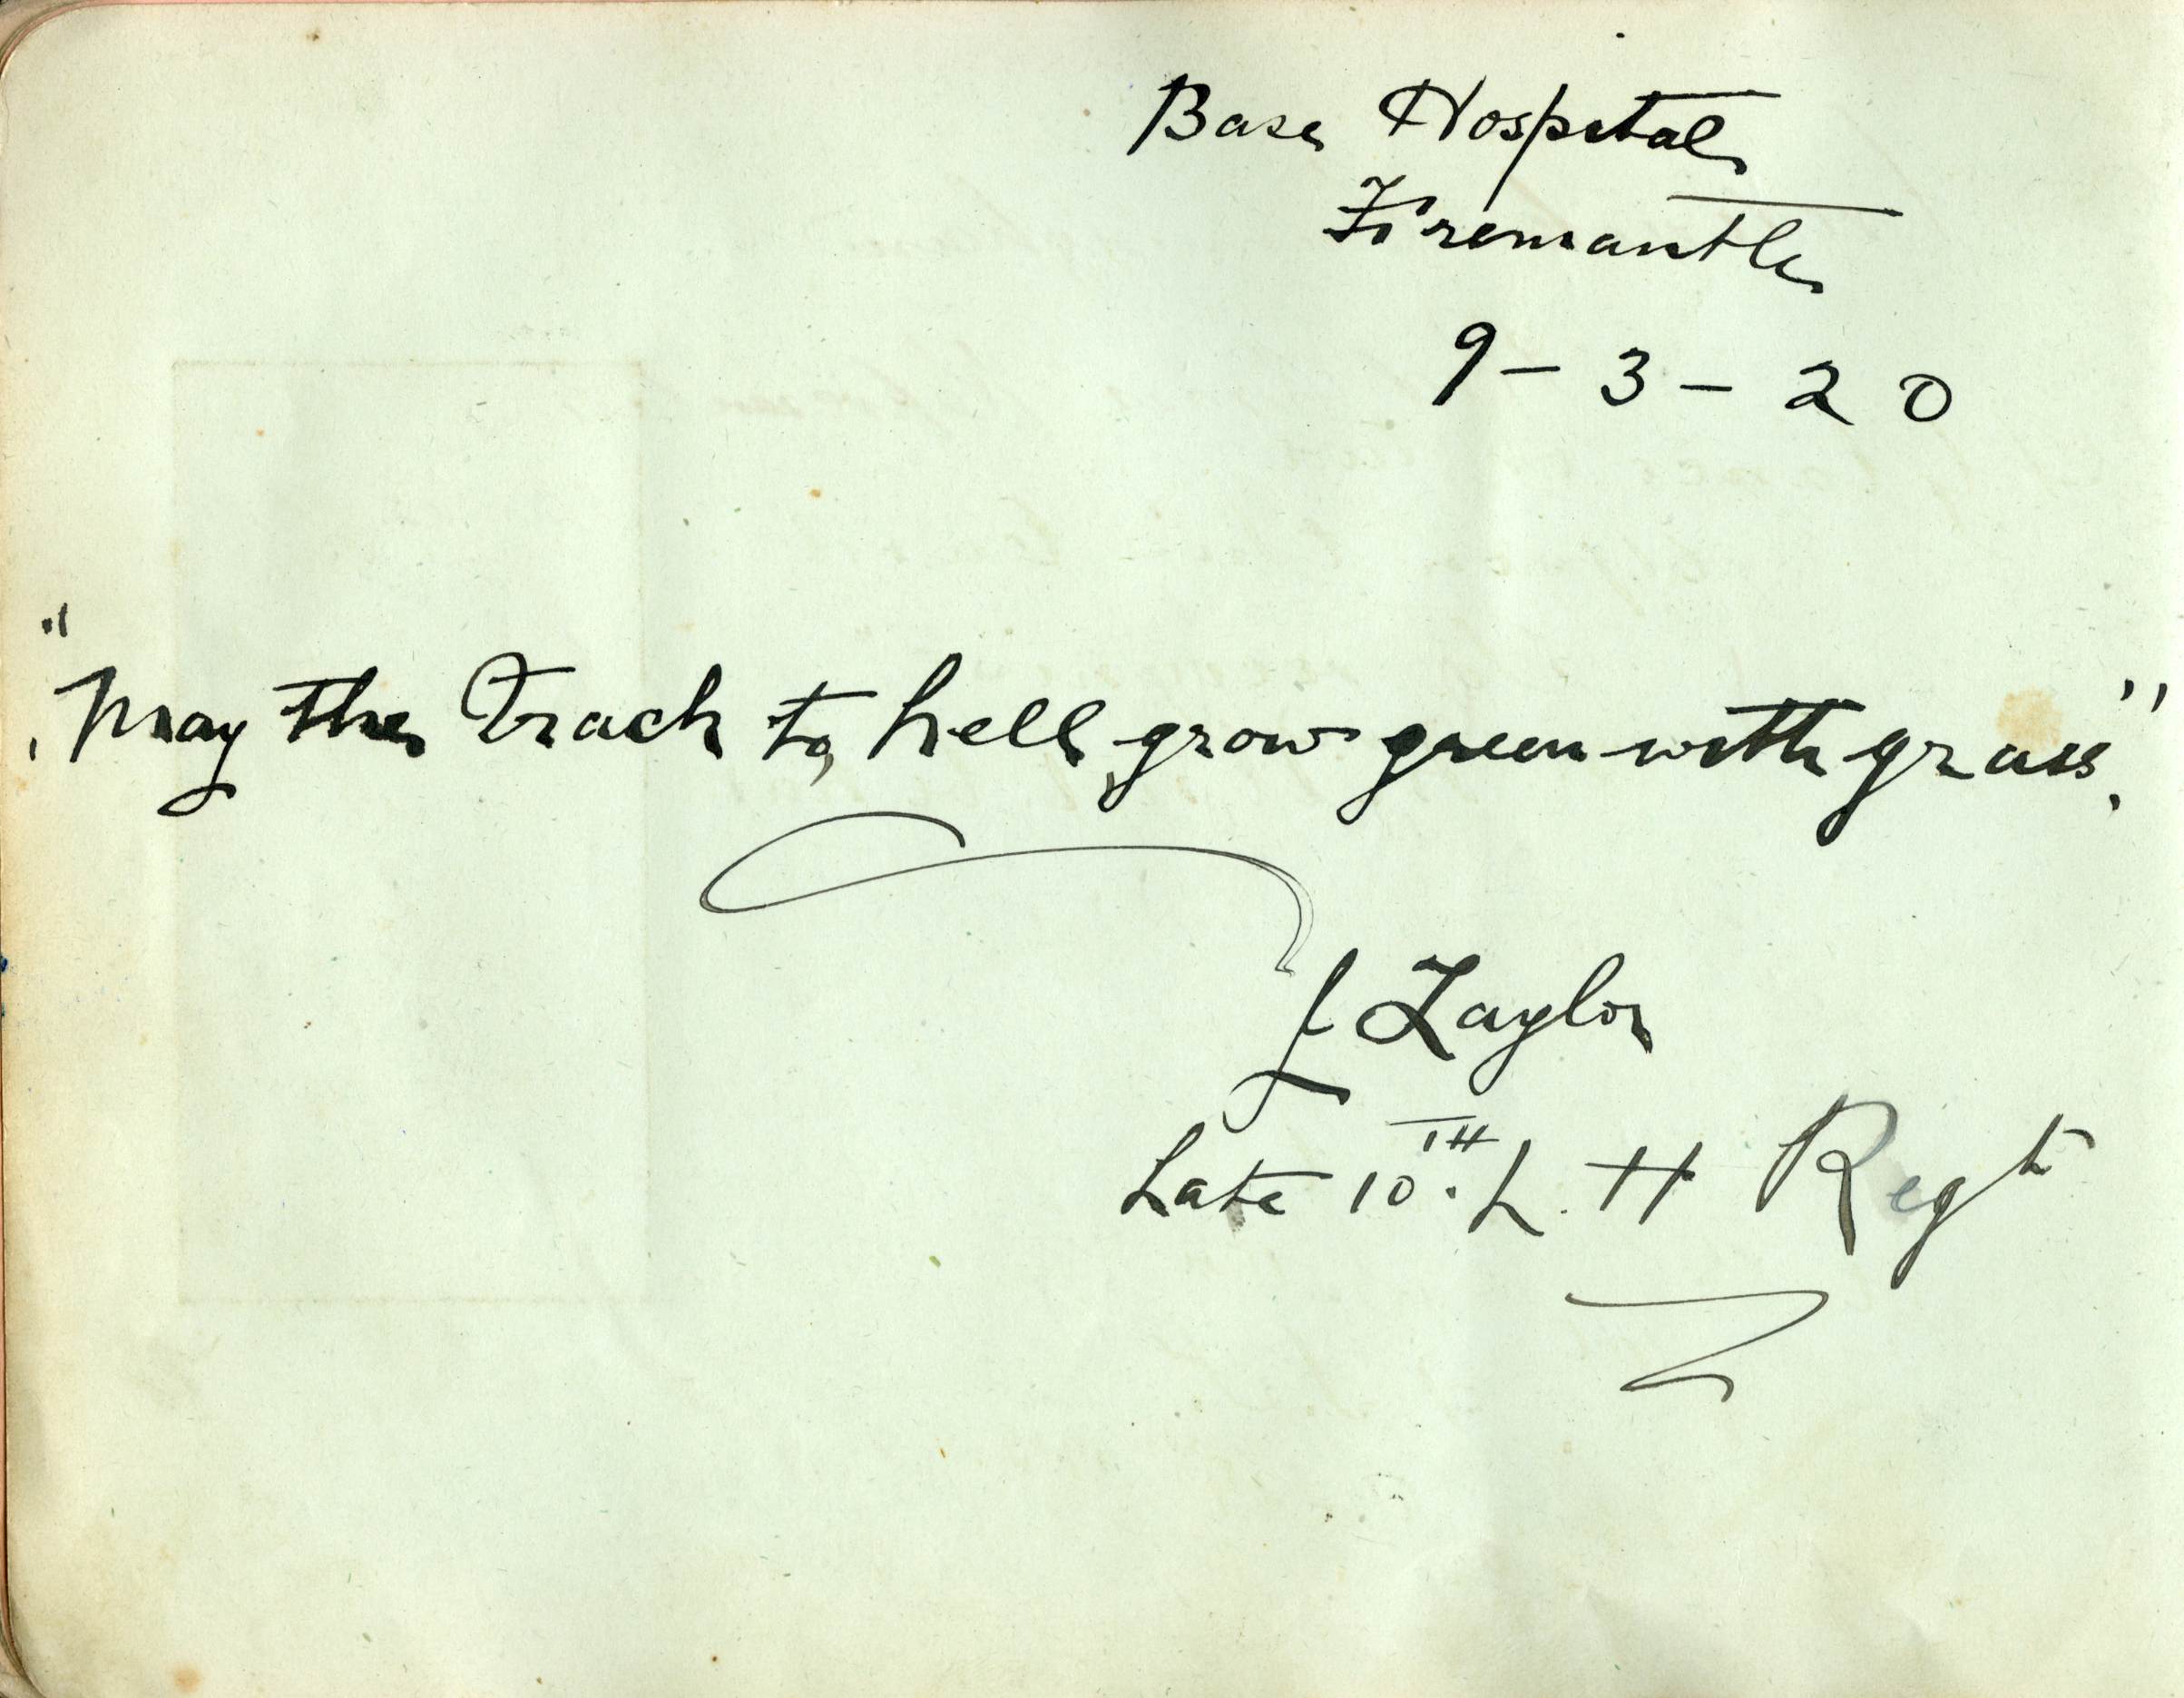 Base Hospital
Fremantle
9 - 3 - 20
"May the Track to hell grow green with grass."
J Taylor
Late 10TH. L. H Regt